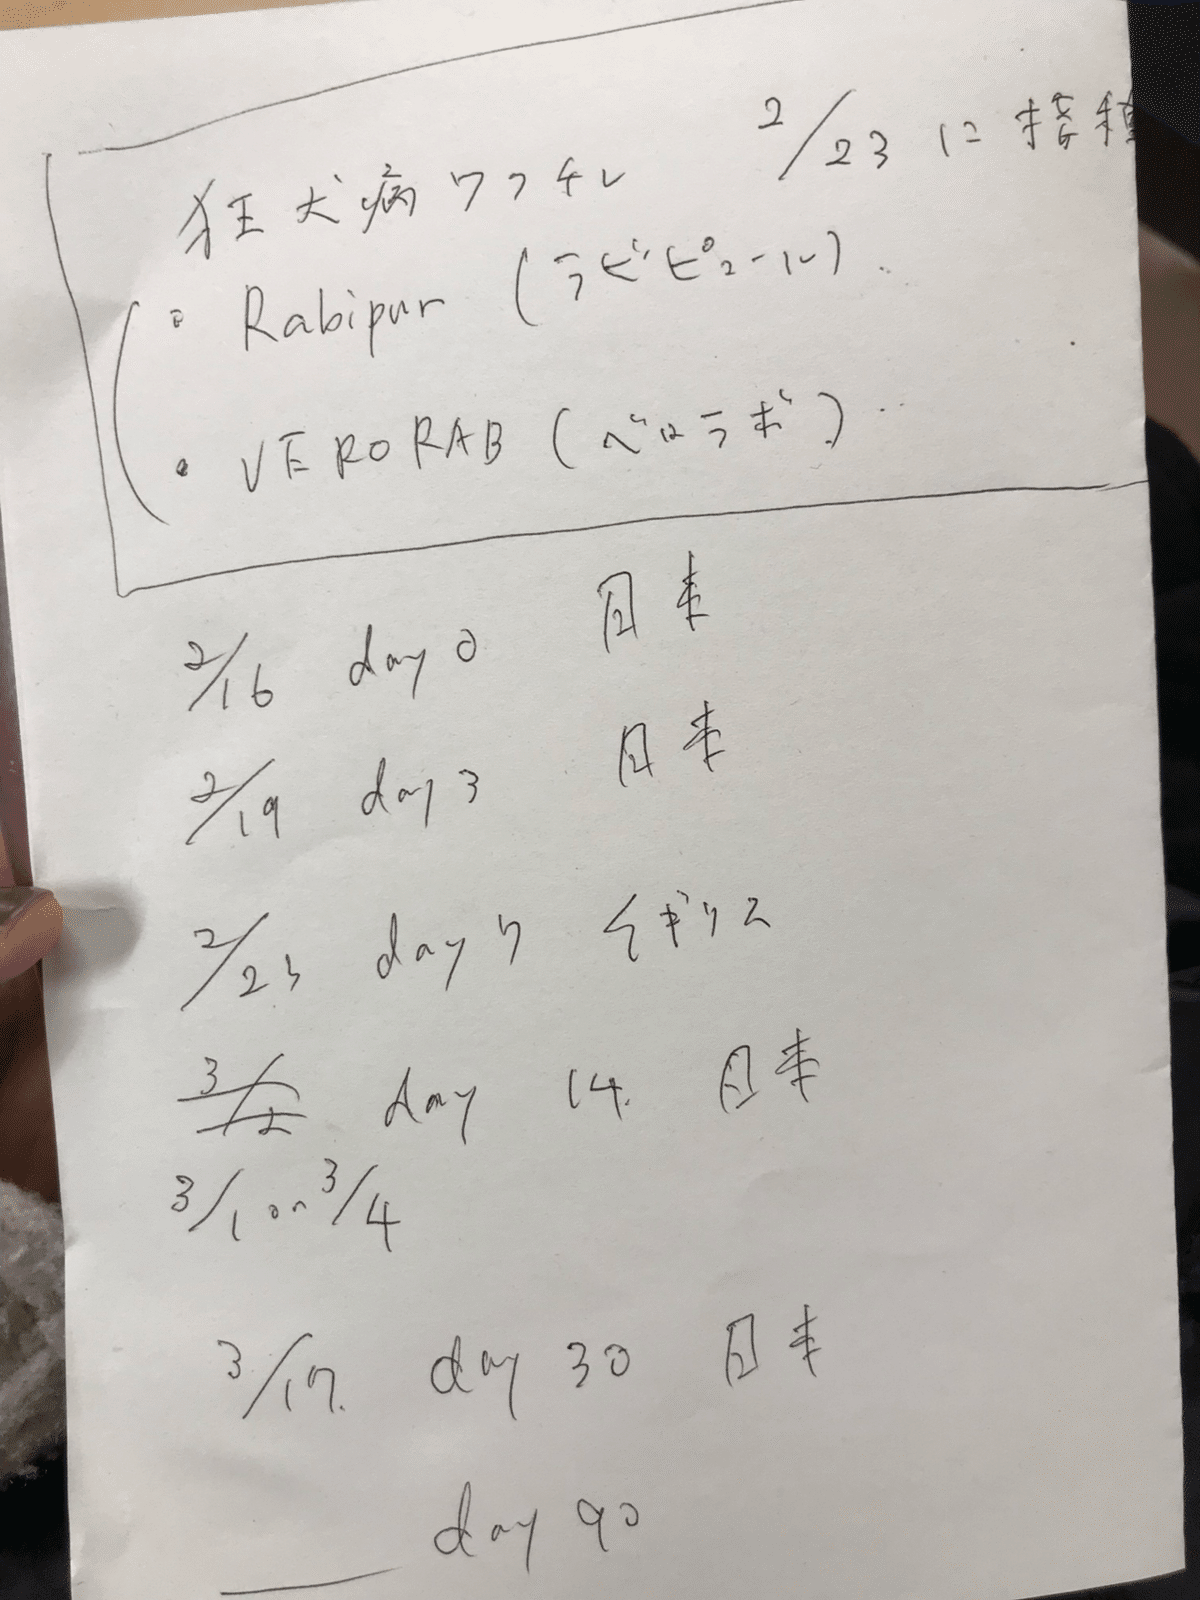 狂犬病ワクチン 2/23 に接種
・Rabipur (ラビピュール)
・VERORAB (ベロラボ)
2/16 day 0 日本
2/19 day 3 日本
2/23 day 7 イギリス
3/2 day 14. 日本
3/1 or 3/4
3/17. day 30 日本
day 90